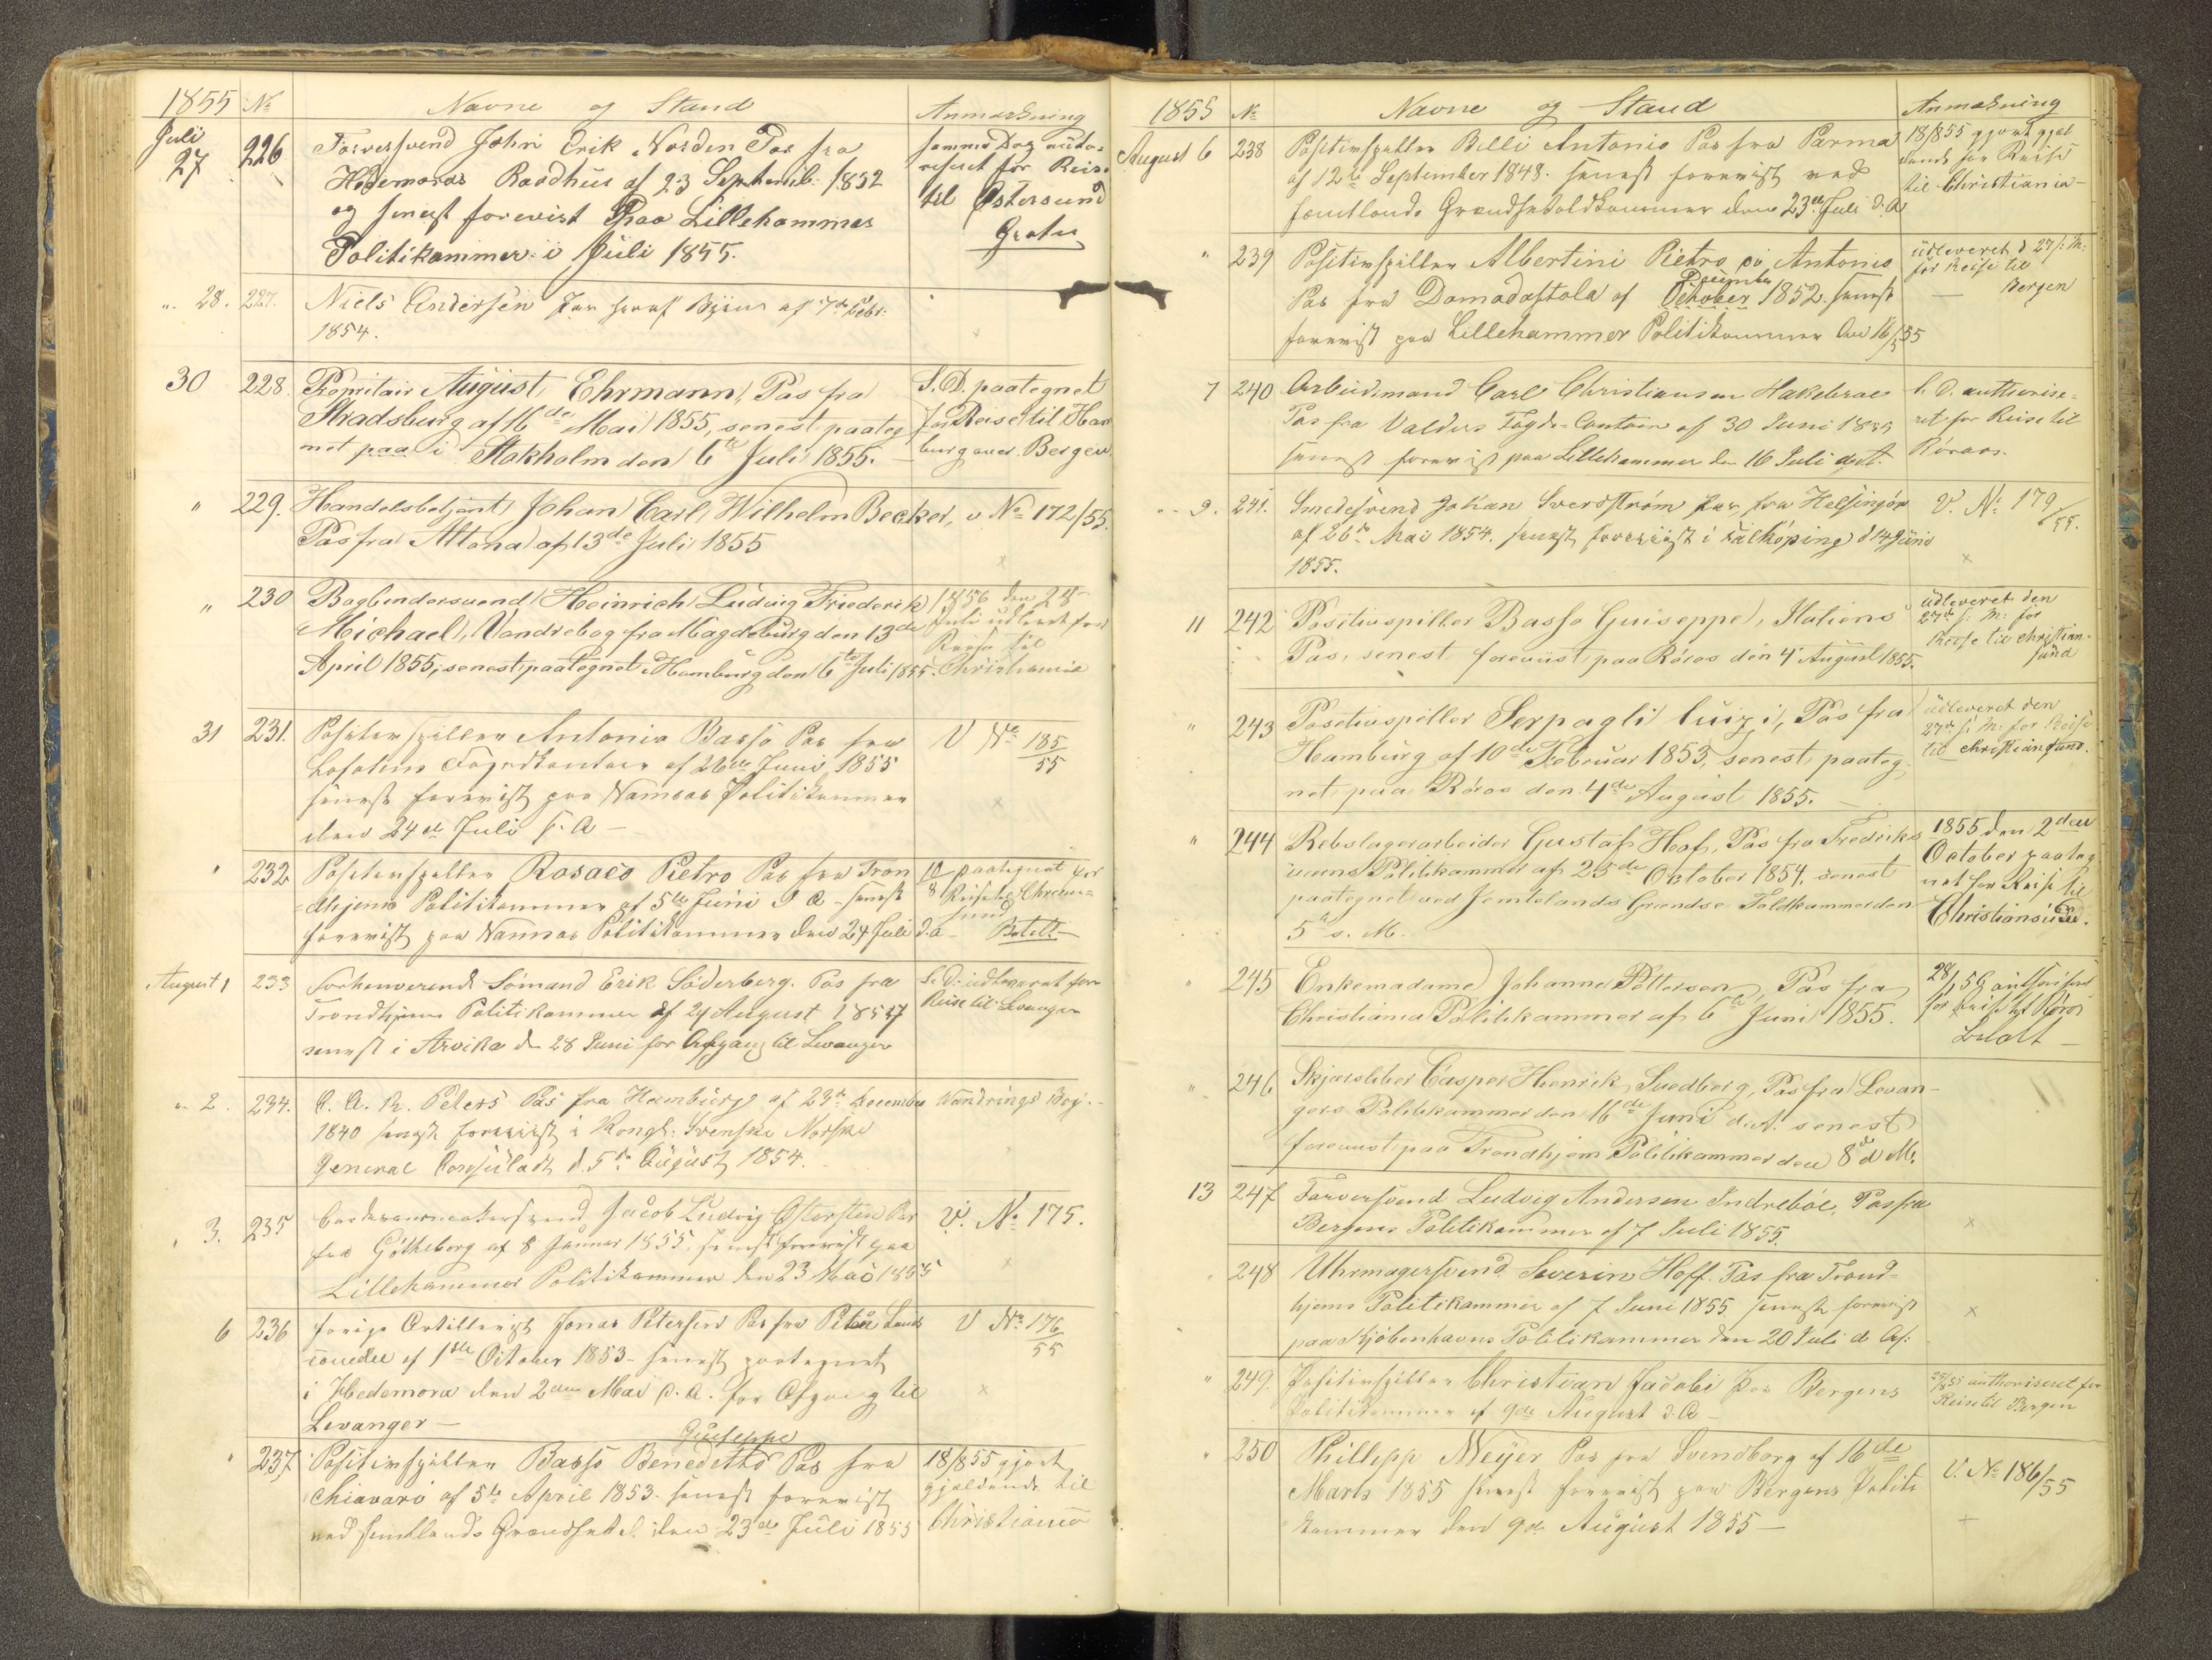 1855 No Navne og Stand Anmærkning
Juli 27 226 Farversvend John Erik Norden Pas fra
Hedemoras Raadhus af 23 Septemb. 1852
og senest forevist Paa Lillehammer
Politikammer i Juli 1855.
samme Dag auto-
riseret for Reise
til Østersund
Gratis
" 28. 227. Niels Andersen Pas fra Byens af 7de Febr.
1854.
30 228. Propritair August Ehrmann, Pas fra
Stradsburg af 16de Mai 1855, senest paateg
net paa i Stokholm den 6te Juli 1855.
S.D. paategnet
for Reise til Ham
burg over Bergen
" 229. Handelsbetjent Johan Carl Wilhelm Becker,
Pas fra Altona af 13de Juli 1855
v No 172/55.
" 230 Bogbindersvend Heinrich Ludvig Friederik
Michael, Vandrebog fra Magdeburg den 13de
April 1855, senest paategnet i Hamburg den 6te Juli 1855.
1856 den 28
Juli udleveret for
Reise til
Christiania
31 231. Positivspiller Antonio Basso Pas fra
Lofotens Fogedkontoir af 26de Juni 1855
senest forevist paa Namsos Politikammer
den 24de Juli s. A –
V No 185/55
" 232 Positivspiller Rosaco Pietro Pas fra Tron
dhjems Politikammer af 5te Juni d A - senest
forevist paa Namsos Politikammer den 24 Juli d.a
10/8 paategnet for
Reise til Christian=
sund
Betalt
August 1 233 Forhenværende Sømand Erik Søderberg. Pas fra
Trondhjems Politikammer af 24 August 1857
senest i Arvika d. 28 Juni for Afgang til Levanger
S. D. udleveret for
Reise til Levanger
" 2. 234. C. A. R. Peters Pas fra Hamburg af 23de December
1840 senest forevist i Kongl: Svenske Norske
General Consuladt d. 5te August 1854.
Vandrings Bog.
" 3. 235 Jacob Ludvig Østersten Pas
fra Götheborg af 8 Januar 1855. senest forevist paa
Lillehammer Politikammer den 23 Mai 1855
V. No 175.
6 236 forige Artillerist Jonas Petersen Pas fra Piteå Lands
af 1ste October 1853 - senest paategnet
i Hedemora den 2den Mai d. A. for Afgang til
Levanger –
V No 176/55
Guseppe
" 237 Positivspiller Basso Benedetto Pas fra
Chiavari af 5te April 1853 - senest forevist
ved Jemtlands den 23de Juli 1855
18/8 55 gjort
gjældende til
Christiania
1855 No Navne og Stand Anmærkning
August 6 238 Positivspiller Belli Antonio Pas fra Parma
af 12te September 1848. senest forevist ved
Jemtlands Grændsetoldkammer den 23de Juli d. A
18/8 55 gjort gjæl
dende for Reise
til Christiania –
" 239 Positivspiller Albertini Pietro di Antonio
December
Pas fra Domodaftola af October 1852. senest
forevist paa Lillehammer Politikammer den 16/5 55
Udleveret d 27 s: M:
for Reise til
Bergen
7 240 Arbeidsmand Carl Christiansen Hakebraae
Pas fra Valders Fogde-Contoir af 30 Juni 1855
senest forevist paa Lillehammer den 16 Juli
s. D. authorise=
ret for Reise til
Röraas.
" 9. 241. Smedesvend Johan Sverdström Pas, fra Helsingör
af 26de Mai 1854. senest forevist i Falköping d 14 Juni
1855.
V. No 179/55.
11 242 Positivspiller Basso Guiseppe, Italiens
Pas, senest foreviist paa Röros den 4 August 1855.
Udleveret den
27de s: M: for
Reise til Christian-
sund
" 243 Posetivspiller Serpagli Luigi, Pas fra
Hamburg af 10de Februar 1853, senest paateg
net paa Röros den 4de August 1855. –
udleveret den
27de s: M: for Reise
til Christiansund.
" 244 Rebslagerarbeider Gustaf Hof, Pas fra Fredriks
værns Politikammer af 25de October 1854, senest
paategnet ved Jemtelands Grændse Toldkammer den
5te s. M.
1855 den 2den
October paateg
net for Reise til
Christiansund.
" 245 Enkemadame Johanne Pettersen, Pas fra
Christiania Politikammer af 6te Juni 1855.
28/1 56 authoriseret
for Reise til Röros
Betalt –
" 246 Skjærsliber Casper Henrik Svedberg, Pas fra Levan-
gers Politikammer den 16de Juni d. A. senest
foreviist paa Trondhjem Politikammer den 8de d M.
13 247 Farversvend Ludvig Andersen Indreböe, Pas fra
Bergens Politikammer af 7 Juli 1855.
" 248 Uhrmagersvend Severin Hoff. Pas fra Trond-
hjems Politikammer af 7 Juni 1855 senest forevist
paa Kjöbenhavns Politikammer den 20 Juli d. A:
" 249. Positivspiller Christian Jacobi Pas Bergens
Politikammer af 9de August d. A –
authoriseret for
Reise til Bergen
" 250 Phillepp Meyer Pas fra Svendborg af 16de
Marts 1855 senest forevist paa Bergens Politi
kammer den 9de August 1855 –
V. No 186/55